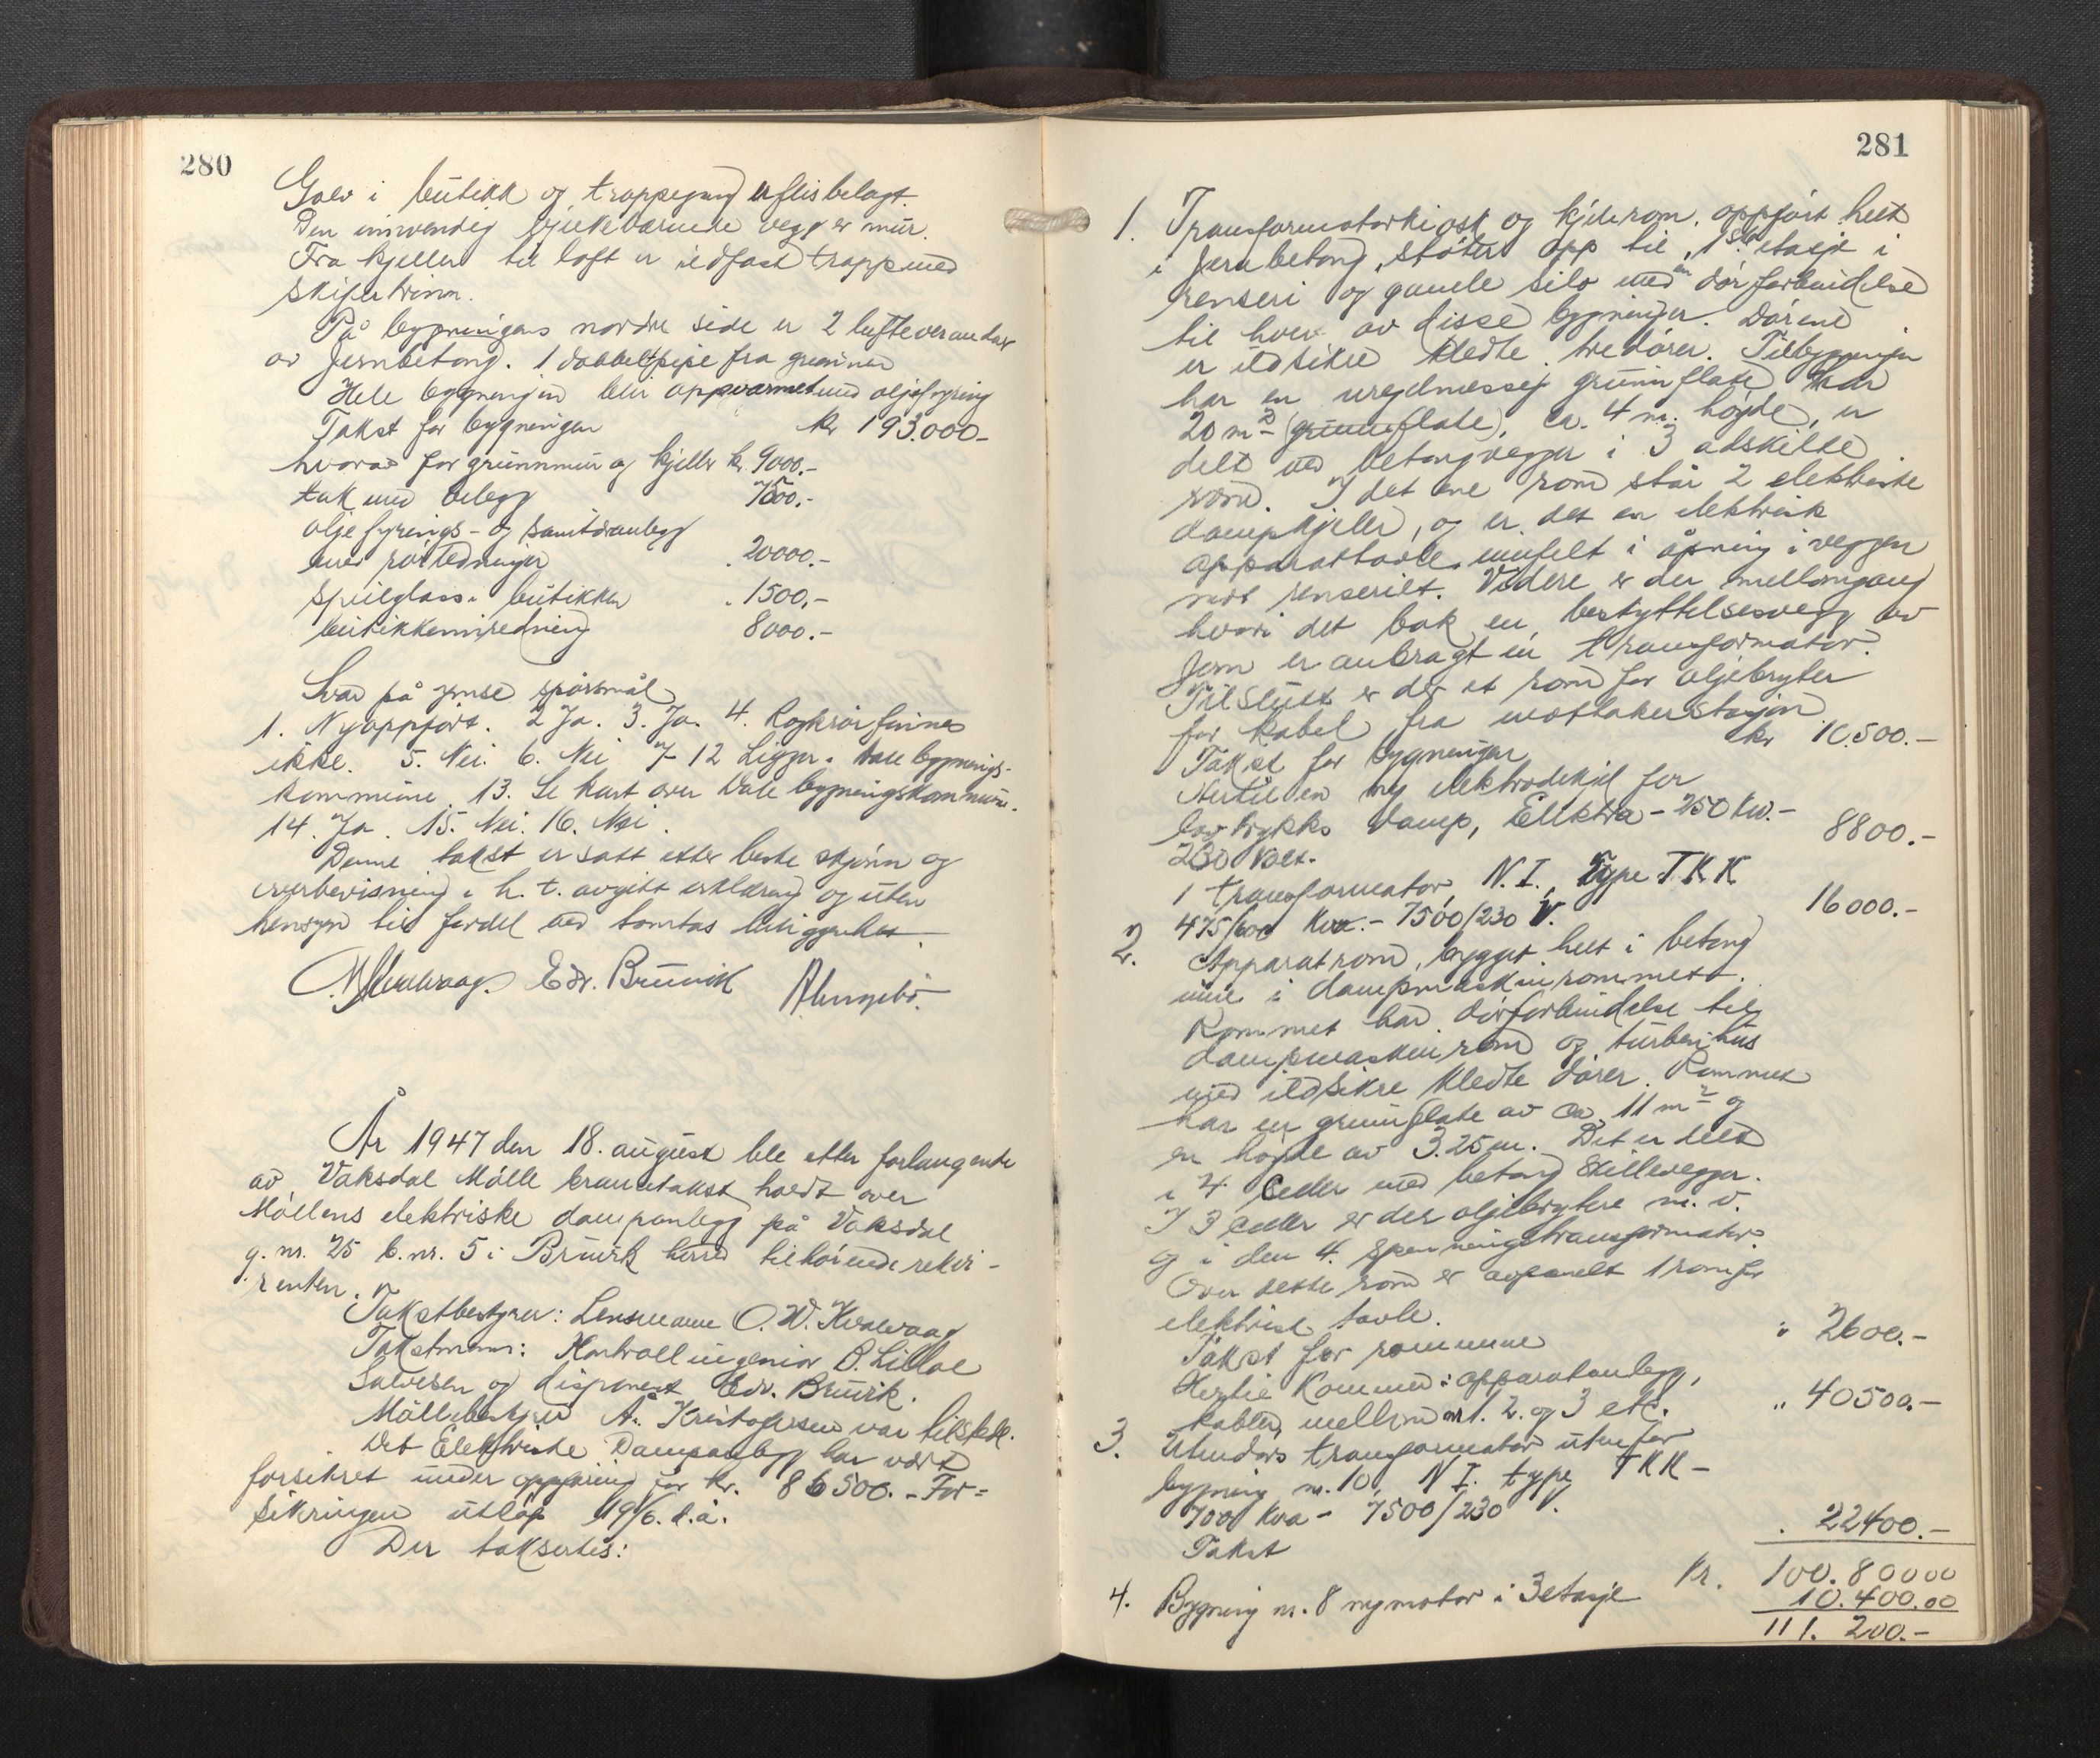 280
Golv i butikk og trappegang er flisbelagt.
Den innvendig bjelkebærende vegg er mur.
Fra kjeller til loft er ildfast trapp med
skifertrinn.
På bygningens nordre side er 2 lufteverandaer
av Jernbetong. 1 dobbeltpipe fra grunnen
Hele bygningen blir oppvarmet med oljefyring
Takst for bygningen kr 193.000-
hvorav for grunnmur og kjeller kr. 9000.-
tak med belegg 7500.-
olje fyrings- og sanitæranlegg
med rørledninger 20000.-
speilglass i butikken 1500.-
butikkinnredning 8000.-
Svar på ymse spørsmål
1. Nyoppført. 2 Ja. 3. Ja. 4. Røykrør finnes
ikke. 5. Nei. 6. Nei 7-12 Ligger i Dale bygnings-
kommune. 13. Se kart over Dale bygningskommune.
14. Ja. 15. Nei. 16. Nei.
Denne takst er satt etter beste skjønn og
overbevisning i h. t. avgitt erklæring og uten
hensyn til fordel ved tomtas beliggenhet.
Edv. Bruvik
År 1947 den 18. august ble etter forlangende
av Vaksdal Mølle branntakst holdt over
Møllens elektriske dampanlegg på Vaksdal
g. nr. 25 b. nr. 5 i Bruvik herred tilhørende rekvi-
renten.
Takstbestyrer: Lensmann O. W. Kvalvaag
Takstmenn: Kontrollingeniør B. Lillo
Salvesen og disponent Edv. Bruvik.
Møllebestyrer A. Kristoffersen var tilstede.
Det Elektriske Dampanlegg har vært
forsikret under oppføring for kr. 86500.- For=
sikringen utløp 19/6. d.å.
Der taksertes:
281
1. Transformatorkiosk og kjelerom, oppført helt
i Jernbetong, støter opp til 1ste etasje i
renseri og gamle silo med en dørforbindelse
til hver av disse bygninger. Dørene
er ildsikre kledte tredører. Tilbygningen
har en uregelmessig grunnflate
20 m2 (grunnflate), ca. 4 m. høyde, er
delt ved betongvegger i 3 adskilte
rom. I det ene rom står 2 elektriske
dampkjeler, og er det en elektrisk
apparattavle innfelt i åpning i veggen
mot renseriet. Videre er der mellomgang
hvori det bak en beskyttelsesvegg av
Jern er anbragt en transformator.
Tilslutt er der et rom for oljebryter
for kabel fra mottakerstasjon
Takst for bygningen kr 10.500.-
Hertil en ny elektrodekjel for
lavtrykks damp, Elektra - 250 kw.-
230 volt. 8800.-
1 transformator, N.I., Type T.K.K
475/600 Kva.- 7500/230 V. 16000.-
2. Apparatrom, bygget helt i betong
inne i dampmaskinrommet.
Rommet har dørforbindelse til
dampmaskinrom og turbinhus
med ildsikre kledte dører. Rommet
har en grunnflate av ca. 11 m2 og
en høyde av 3.25 m. Det er delt
i 4 celler med betong skillevegger.
I 3 celler er der oljebrytere m. v.
og i den 4. spenningstransformator.
Over dette rom er avdelt 1 rom for
elektrisk tavle.
Takst for rommene " 2600.-
Hertil kommer: apparatanlegg,
kabler mellom nr 1. 2. og 3 etc. " 40500.-
3. Utendørs transformator utenfor
bygning nr. 10, N I. type TKK-
700 Kva - 7500/230 V.
Takst 22400.-
Kr. 100.80000
4. Bygning nr. 8 ny motor i 3 etasje 10.400.00
111. 200.-